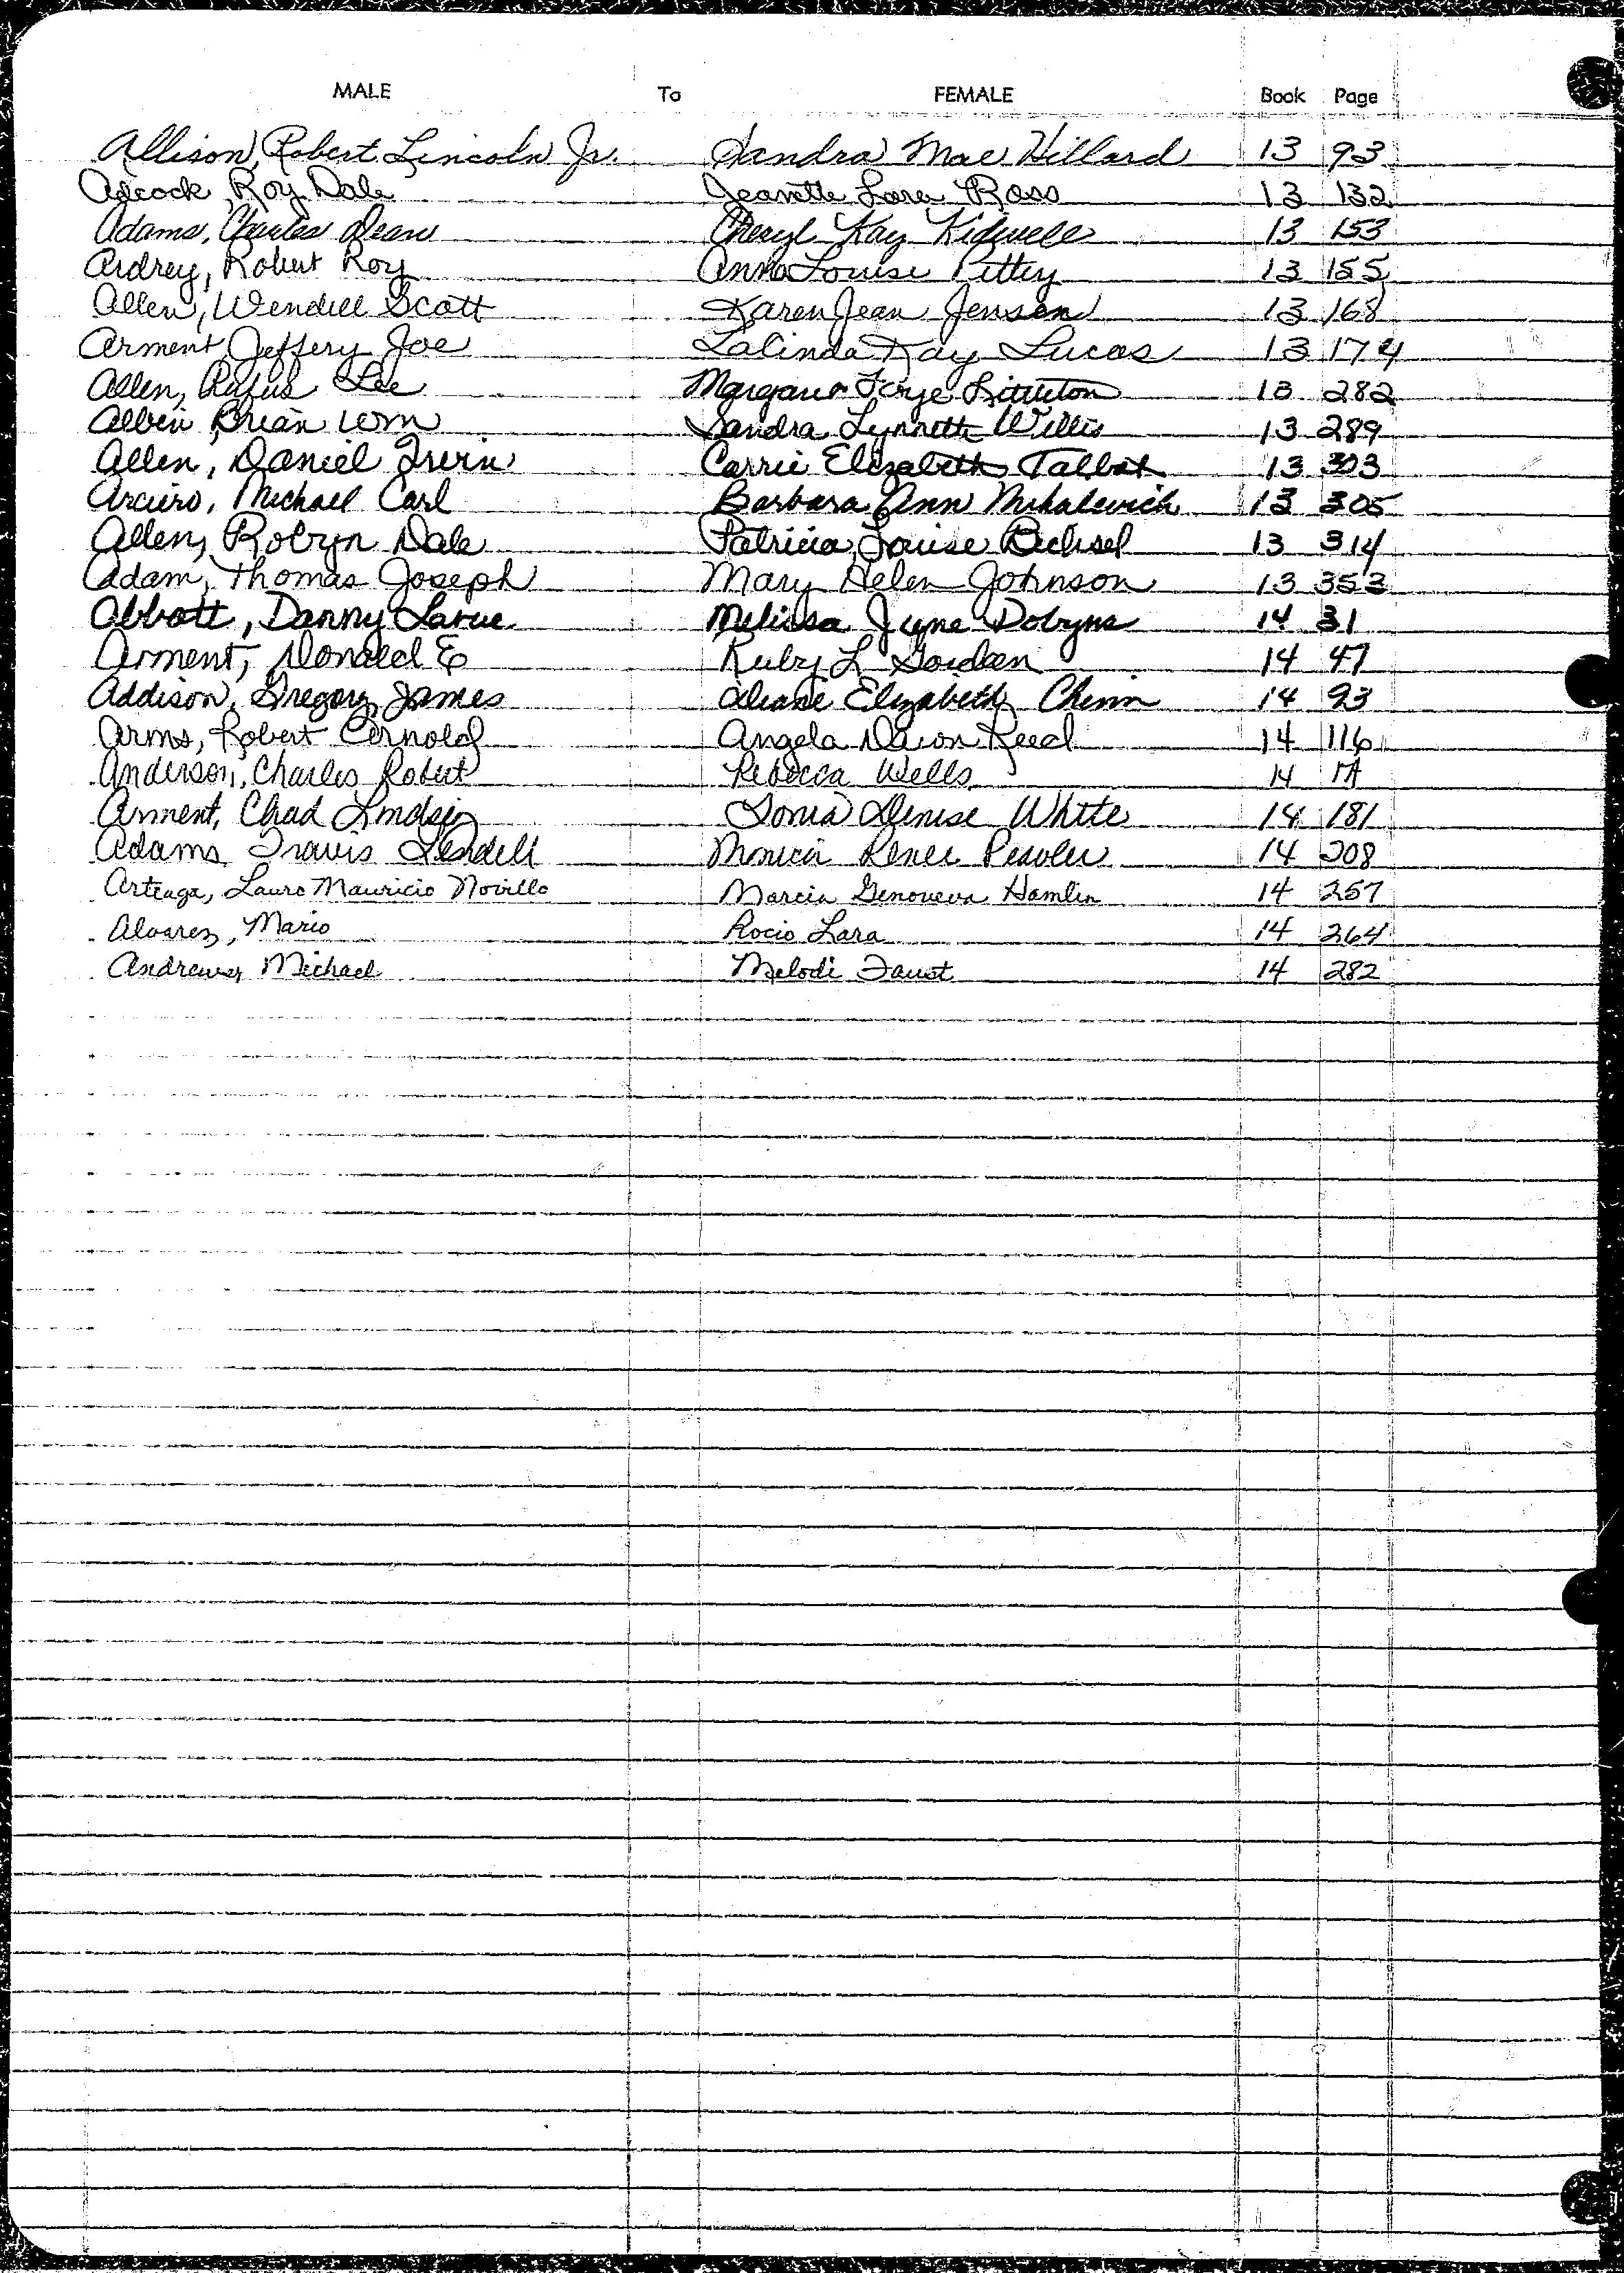 MALE To FEMALE Book Page
Allison, Robert Lincoln Jr. Sandra Mae Hillard 13 93
Adcock, Roy Dale Jeanette Lora Ross 13 132
Adams, Charles Dean Cheryl Kay Kidwell 13 153
Ardrey, Robert Roy Anna Louise Pettey 13 155
Allen, Wendell Scott Karen Jean Jensen 13 168
Arment, Jeffery Joe Lalinda Kay Lucas 13 174
Allen, Rufus Lee Margaret Faye Littleton 13 282
Albin, Brian Wm Sandra Lynnette Willis 13 289
Allen, Daniel Irvin Carrie Elizabeth Talbot 13 303
Arciero, Michael Carl Barbara Ann Mihalevich 13 305
Allen, Robyn Dale Patricia Louise Bichsel 13 314
Adam, Thomas Joseph Mary Helen Johnson 13 353
Abbott, Danny Larue Melissa Jyne Dobyns 14 31
Arment, Donald E Ruby L 14 47
Addison, Gregory James Elizabeth 14 93
Arms, Robert Arnold Angela Dawn Reed 14 116
Anderson, Charles Robert Rebecca Wells 14
Arment, Chad Lindsey Tonia Denise White 14 181
Adams, Travis Lendell Monica Renee Peavler 14 208
Arteaga, Lauro Mauricio Novillo Marcia Genoveva Hamlin 14 257
Alvarez, Mario Rocio Lara 14 264
Andrews, Michael Melodi Faust 14 282